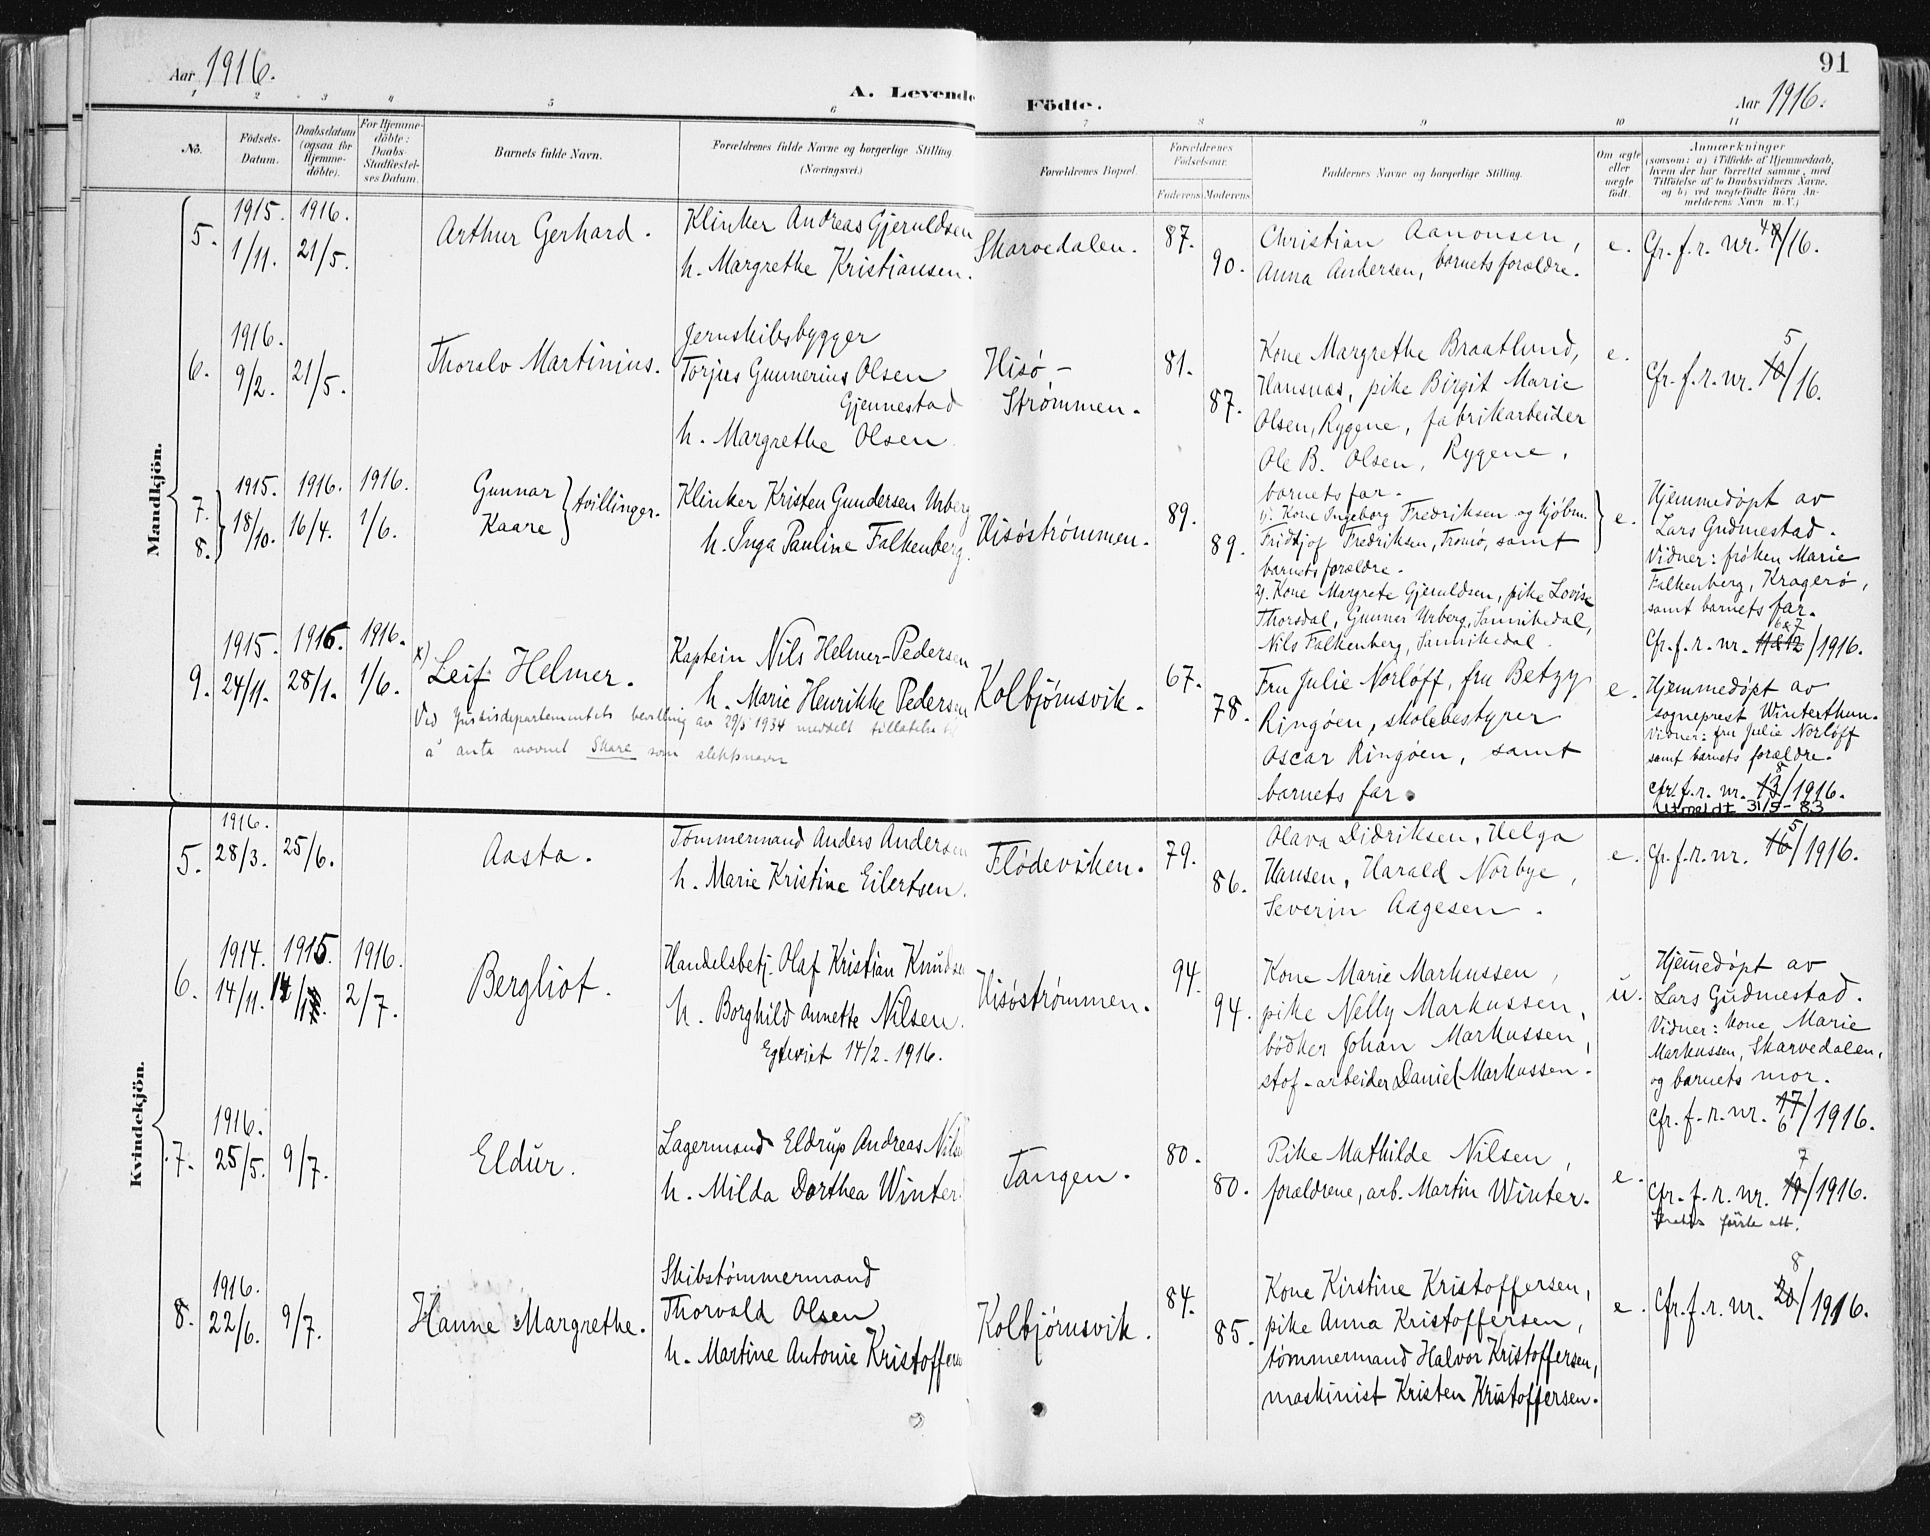 Aar 1916.
91
A. Levende Födte.
Aar 1916.
1 2 3 4 5 6 7 8 9 10 11
No.
Födsels-
Datum.
Daabsdatum
(ogsaa for
Hjemme-
döbte).
For Hjemme-
döbte:
Daabs-
Stadfæstel-
ses Datum.
Barnets fulde Navn.
Forældrenes fulde Navne og borgerlige Stilling
(Næringsvei.)
Forældrenes Bopæl.
Forældrenes
Födselsaar.
Faderens Moderens
Faddernes Navne og borgerlige Stilling.
Om ægte
eller
uægte
födt.
Anmærkninger
(saasom: a) i Tilfælde af Hjemmedaab,
hvem der har forrettet samme, med
Tilföielse af to Daabsvidners Navne,
og b) ved uægtefödte Börn An-
melderens Navn m. V.)
Mandkjön.
5.
1915.
1/11.
1916.
21/5.
Arthur Gerhard.
Klinker Andreas Gjeruldsen
h. Margrethe Kristiansen.
Skarvedalen.
87.
90.
Christian Aanonsen,
Anna Andersen, barnets forældre.
e.
Cfr. f. r. nr. /16.
6.
1916.
9/2.
21/5.
Thoralv Martinius.
Jernskibsbygger
Torjus Gunnerius Olsen
Gjennestad
h. Margrethe Olsen.
Hisø-
Strømmen.
81.
87.
Kone Margrethe Braatlund,
Hansnæs, pike Birgit Marie
Olsen, Rygene, fabrikarbeider
Ole B. Olsen, Rygene,
barnets far.
e.
5
Cfr. f. r. nr. 10/16.
7.
8.
1915.
18/10.
1916.
16/4.
1916.
1/6.
Gunnar
Kaare
tvillinger.
Klinker Kristen Gundersen Urberg
h. Inga Pauline Falkenberg.
Hisøstrømmen.
89.
89.
1). Kone Ingeborg Fredriksen og kjøbm.
Fridtjof Fredriksen, Tromø, samt
barnets forældre.
2). Kone Margrete Gjeruldsen, pike Lovise
Thorsdal, Gunner Urberg, Sannikedal,
Nils Falkenberg, Sannikedal.
e.
Hjemmedøpt av
Lars Gudmestad.
Vidner: frøken Marie
Falkenberg, Kragerø,
samt barnets far.
6&7
Cfr. f. r. nr. 11&12/1916.
9.
1915.
24/11.
1916.
28/1.
1916.
1/6.
x)
Leif Helmer.
Kaptein Nils Helmer-Pedersen
h. Marie Henrikke Pedersen
Ved Justisdepartementets bevilling av 29/5 1934 meddelt tillatelse til
å anta navnet Skare som slektsnavn
Kolbjørnsvik.
67.
78.
Fru Julie Norløff, fru Betzy
Ringøen, skolebestyrer
Oscar Ringøen, samt
barnets far.
e.
Hjemmedøpt av
sogneprest Winterthun.
Vidner: fru Julie Norløff
samt barnets forældre.
8
Cfr. f. r. nr. 13/1916.
Utmeldt 31/5-83
Kvindekjön.
5.
1916.
28/3.
25/6.
Aasta.
Tømmermand Anders Andersen
h. Marie Kristine Eilertsen.
Flødeviken.
79.
86.
Olava Didriksen, Helga
Hansen, Harald Norbye,
Severin Aagesen.
e.
5
Cfr. f. r. nr. 16/1916.
6.
1914.
14/11.
1915.
1916.
2/7.
Bergliot.
Handelsbetj. Olaf Kristian Knuds
h. Borghild Annette Nilsen.
Egteviet 14/2-1916.
Hisøstrømmen.
94.
94.
Kone Marie Markussen,
pike Nelly Markussen,
bødker Johan Markussen,
stof-arbeider Daniel Markussen.
u.
Hjemmedøpt av
Lars Gudmestad.
Vidner: kone Marie
Markussen, Skarvedalen,
og barnets mor.
Cfr. f. r. nr. 17/1916.
6
7.
1916.
25/5.
9/7.
Eldur.
Lagermand Eldrup Andreas Nils
h. Milda Dorthea Winter.
Tangen.
80.
80.
Pike Mathilde Nilsen,
forældrene, arb. Martin Winter.
e.
7
Cfr. f. r. nr. 19/1916.
første att.
8.
1916.
22/6.
9/7.
Hanne Margrethe.
Skibstømmermand
Thorvald Olsen
h. Martine Antonie Kristoffers
Kolbjørnsvik.
84.
85.
Kone Kirstine Kristoffersen,
pike Anna Kristoffersen,
tømmermand Halvor Kristoffersen,
maskinist Kristen Kristoffersen.
e.
8
Cfr. f. r. nr. 20/1916.